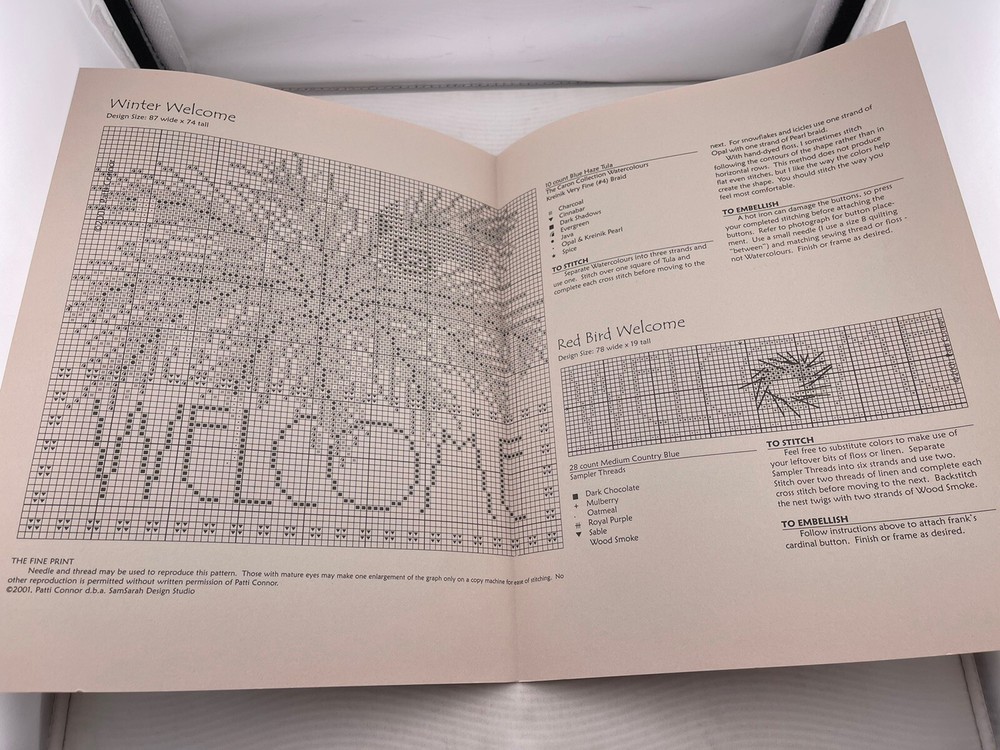 Winter Welcome
Design Size: 87 wide x 74 tall
WELCOME
THE FINE PRINT
Needle and thread may be used to reproduce this pattern. Those with mature eyes may make one enlargement of the graph only on a copy machine for ease of stitching. No
other reproduction is permitted without written permission of Patti Connor.
©2001, Patti Connor d.b.a. SamSarah Design Studio
10 count Blue Haze Tula
The Caron Collection Watercolours
Kreinik Very Fine (#4) Braid
Charcoal
Cinnabar
Dark Shadows
Evergreen
Java
Opal & Kreinik Pearl
Spice
TO STITCH
Separate Watercolours into three strands and
use one. Stitch over one square of Tula and
complete each cross stitch before moving to the
next. For snowflakes and icicles use one strand of
Opal with one strand of Pearl braid.
With hand-dyed floss, I sometimes stitch
following the contours of the shape rather than in
horizontal rows. This method does not produce
flat even stitches, but I like the way the colors help
create the shape. You should stitch the way you
feel most comfortable.
TO EMBELLISH
A hot iron can damage the buttons, so press
your completed stitching before attaching the
buttons. Refer to photograph for button place-
ment. Use a small needle (I use a size 8 quilting
"between") and matching sewing thread or floss -
not Watercolours. Finish or frame as desired.
Red Bird Welcome
Design Size: 78 wide x 19 tall
28 count Medium Country Blue
Sampler Threads
Dark Chocolate
Mulberry
Oatmeal
Royal Purple
Sable
Wood Smoke
TO STITCH
Feel free to substitute colors to make use of
your leftover bits of floss or linen. Separate
Sampler Threads into six strands and use two.
Stitch over two threads of linen and complete each
cross stitch before moving to the next. Backstitch
the nest twigs with two strands of Wood Smoke.
TO EMBELLISH
Follow instructions above to attach frank's
cardinal button. Finish or frame as desired.